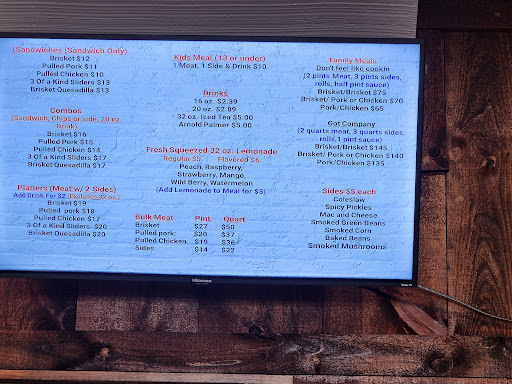 (Sandwiches (Sandwich Only)
Brisket $12
Pulled Pork $11
Pulled Chicken $10
3 Of a Kind Sliders $13
Brisket Quesadilla $13
Combos
(Sandwich, Chips or side, 20 oz
Drink)
Brisket $16
Pulled Pork $15
Pulled Chicken $14
3 Of a Kind Sliders $17
Brisket Quesadilla $17
Platters (Meat w/ 2 Sides)
Add Drink For $2 (Excludes 32 oz.)
Brisket $19
Pulled pork $18
Pulled Chicken $17
3 Of a Kind Sliders $20
Brisket Quesadilla $20
Kids Meal (13 or under)
1/Meat, 1 Side & Drink $10
Drinks
16 oz. $2.39
20 oz. $2.89
32 oz. Iced Tea $5.00
Arnold Palmer $5.00
Fresh Squeezed 32 oz. Lemonade
Regular $5 Flavored $6
Peach, Raspberry,
Strawberry, Mango,
Wild Berry, Watermelon
(Add Lemonade to Meal for $3)
Bulk Meat Pint Quart
Brisket $27 $50
Pulled pork $20 $37
Pulled Chicken $19 $36
Sides $14 $22
Family Meals
Don't feel like cookin
(2 pints Meat, 3 pints sides,
rolls, half pint sauce)
Brisket/Brisket $75
Brisket/ Pork or Chicken $70
Pork/Chicken $65
Got Company
(2 quarts meat, 3 quarts sides,
rolls,1 pint sauce)
Brisket/Brisket $145
Brisket/ Pork or Chicken $140
Pork/Chicken $135
Sides $5 each
Coleslaw
Spicy Pickles
Mac and Cheese
Smoked Green Beans
Smoked Corn
Baked Beans
Smoked Mushrooms
Hisense